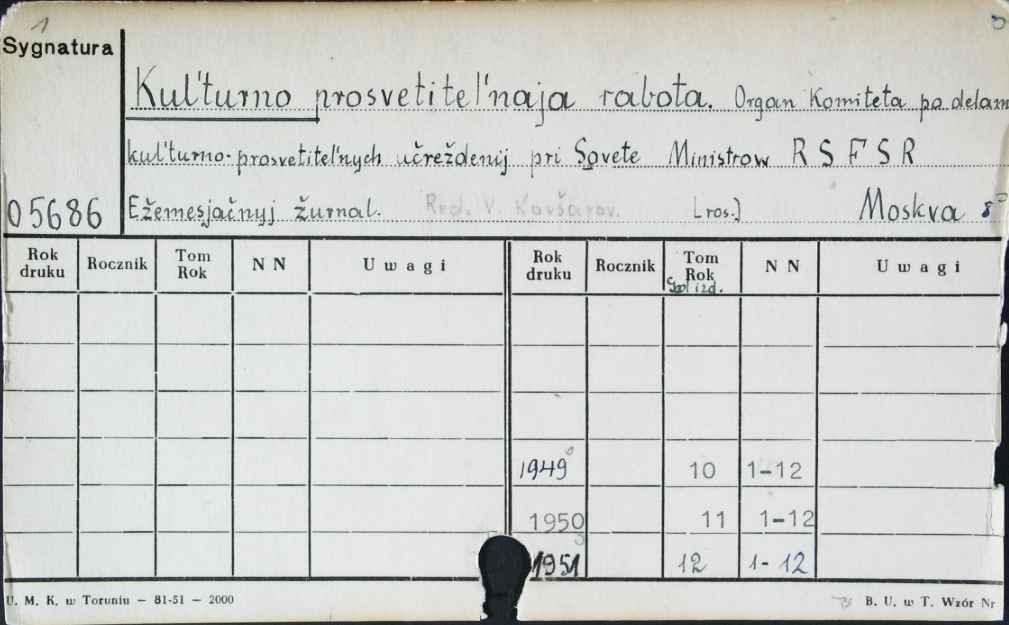 1
Sygnatura
Kul'turno prosvetitel'naja rabota. Organ Komiteta po delam
kul'turno-prosvetitel'nych učreždenij pri Sovete Ministrow RSFSR
05686 Ežemesjačnyj žurnal. Red. V. Kovšarov. [ros.] Moskva 8°
Rok druku Rocznik Tom Rok NN Uwagi Rok druku Rocznik Tom Rok NN Uwagi
god izd.
1949 10 1-12
1950 11 1-12
1951 12 1-12
U. M. K. w Toruniu — 81-51 — 2000 B. U. w T. Wzór Nr